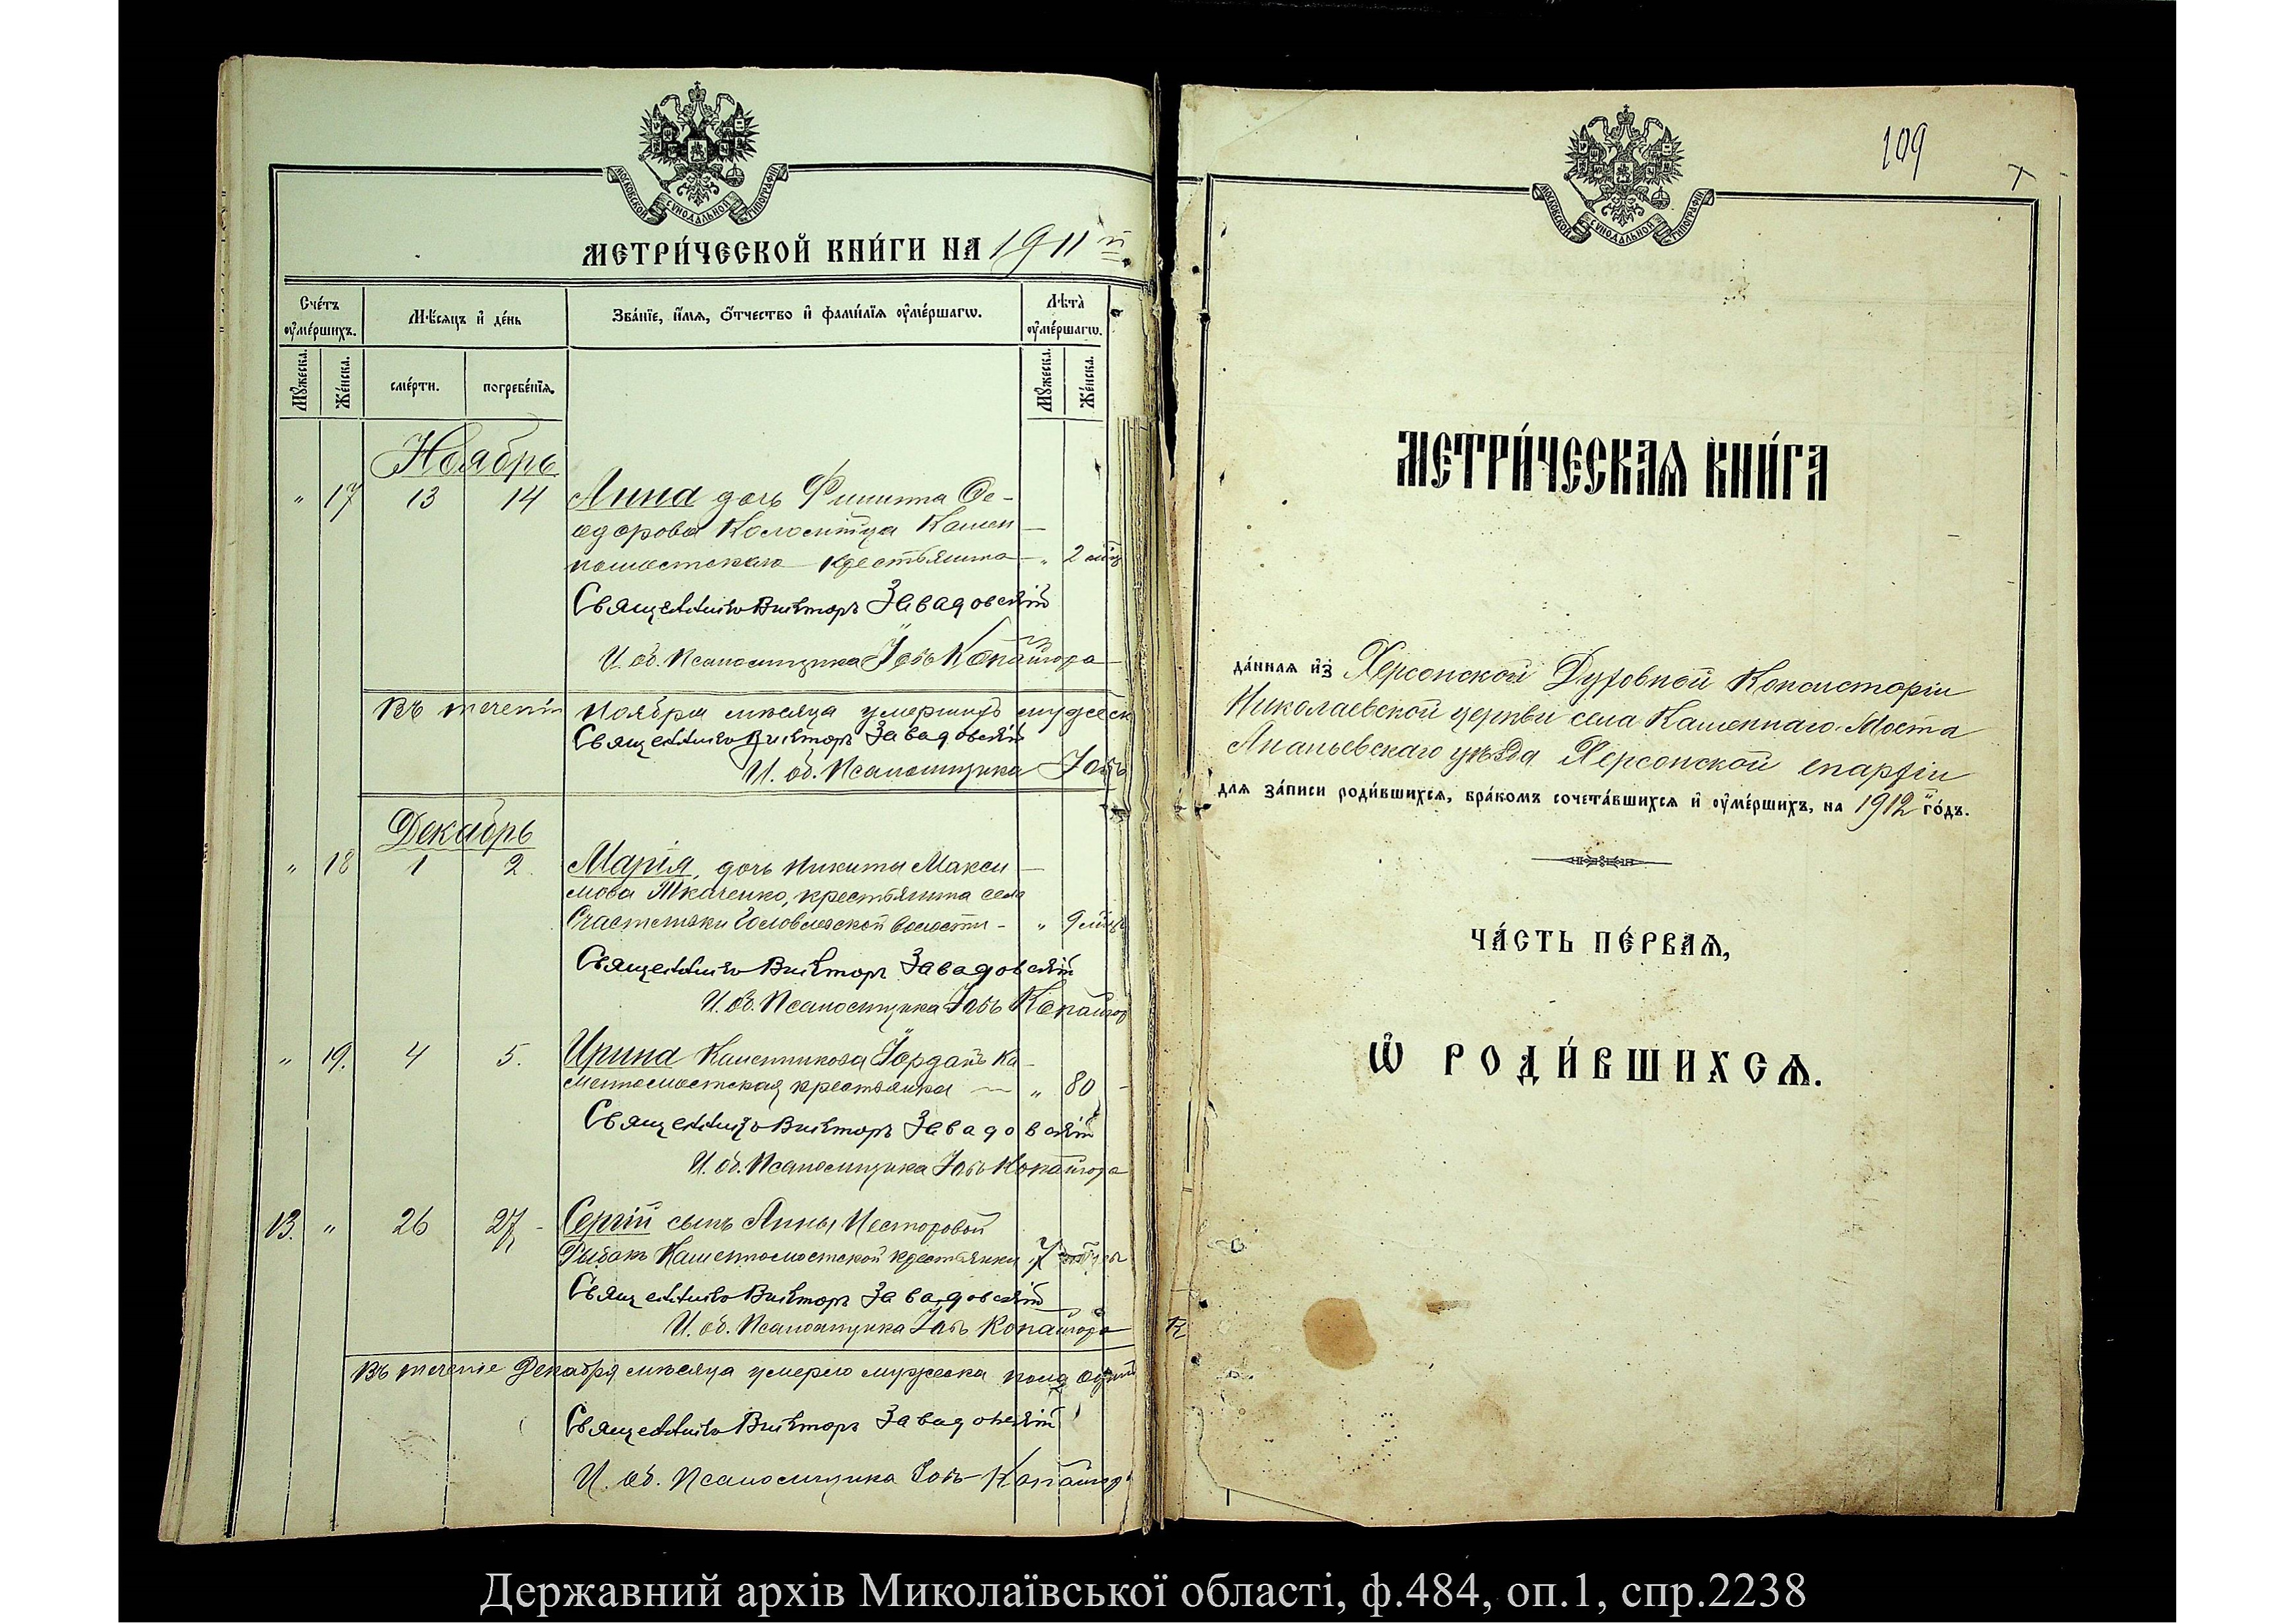 МОСКОВСКОЙ СѴНОДАЛЬНОЙ ТИПОГРАФІИ
МЕТРИ́ЧЕСКОЙ КНИ́ГИ НА 1911 й
Сче́тъ ᲂу҆ме́ршихъ.
Мѣ́сяцъ и҆ де́нь
Зва́нїе, и҆́мѧ, ѻ҆́тчество и҆ фами́лїѧ ᲂу҆ме́ршагѡ.
Лѣта̀ ᲂу҆ме́ршагѡ.
Мꙋ́жеска. Же́нска.
сме́рти.
погребе́нїѧ.
Мꙋ́жеска. Же́нска.
Ноябрь
" 17 13 14 Анна дочь Филиппа Ѳе-
одорова Колосница Камен
номостскаго крестьянина " 2 мѣс
Священникъ Викторъ Завадовскій
И. об. Псаломщика Іовъ Копайгора
Въ теченіи Ноября мѣсяца умершихъ мужеск
Священникъ Викторъ Завадовскій
И. об. Псаломщика Іовъ
Декабрь
" 18 1 2. Марія, дочь Никиты Макси
мова Ткаченко, крестьянина села
Счастливки Головлевской волости - " 9 мѣс
Священникъ Викторъ Завадовскій
И. об. Псаломщика Іовъ Копайгор
" 19. 4 5. Ирина Калинникова Іорданъ Ка-
менномостская крестьянка " 80
Священникъ Викторъ Завадовскій
И. об. Псаломщика Іовъ Копайгора
13. " 26 27 Сергій сынъ Анны Несторовой
Рыбакъ Каменномостской крестьянки 7
Священникъ Викторъ Завадовскій
И. об. Псаломщика Іовъ Копайгора
Въ теченіе Декабря мѣсяца умерло мужеска пола одинъ
Священникъ Викторъ Завадовскій
И. об. Псаломщика Іовъ Копайгор
109
МОСКОВСКОЙ СѴНОДАЛЬНОЙ ТИПОГРАФІИ
МЕТРИ́ЧЕСКАѦ КНИ́ГА
да́ннаѧ и҆з̾ Херсонской Духовной Консисторіи
Николаевской церкви села Каменнаго-Моста
Ананьевскаго уѣзда Херсонской епархіи
для за́писи роди́вшихсѧ, бра́комъ сочета́вшихсѧ и҆ ᲂу҆ме́ршихъ, на 1912 й го́дъ.
ЧА́СТЬ ПЕ́РВАѦ,
Ѽ РОДИ́ВШИХСѦ.
Державний архів Миколаївської області, ф.484, оп.1, спр.2238